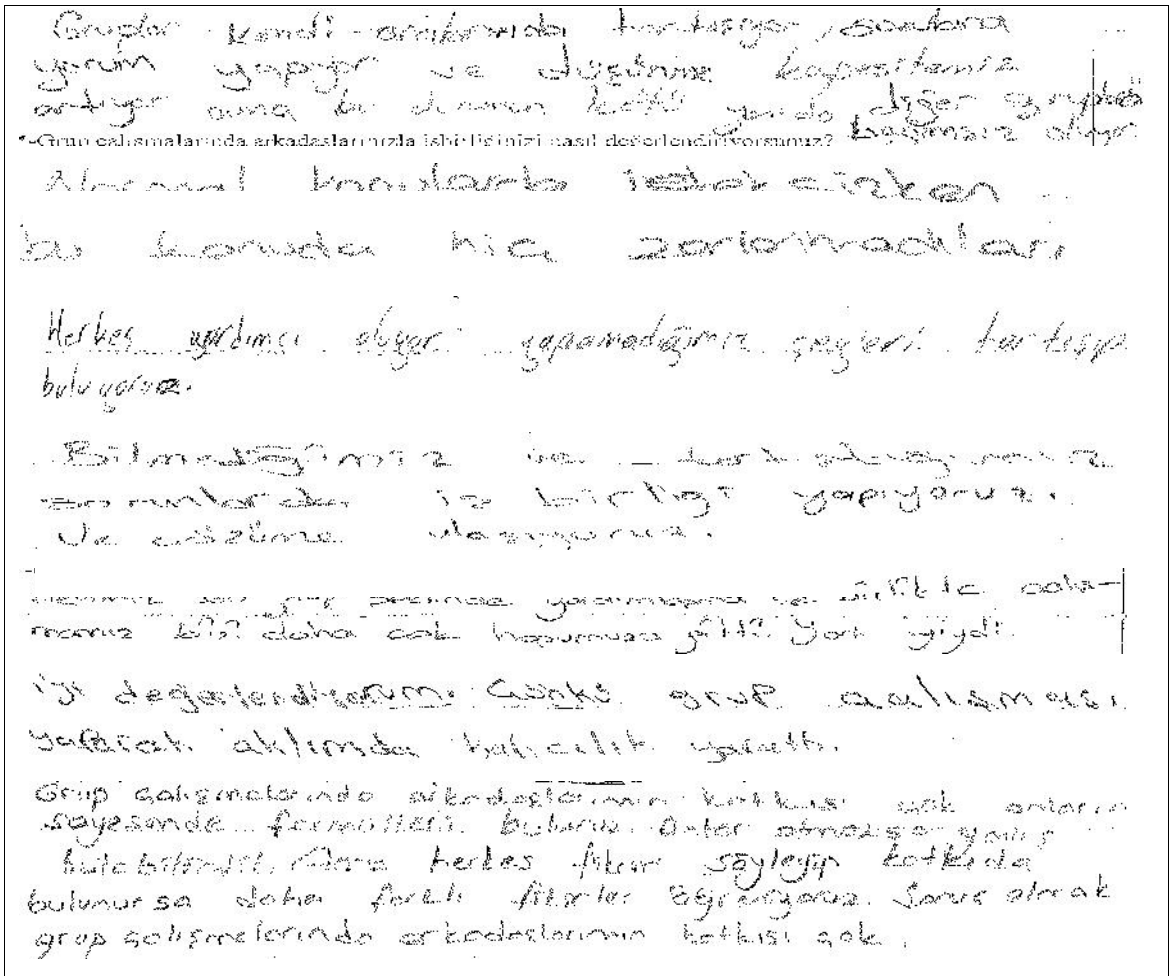 Gruplar kendi aralarında tartışıyor, sonra
yorum yapıyor ve düşünme kapasitemiz
artıyor ama bu durumun kötü yanıda diğer grupla
bağımsız oluyor.
-Grup çalışmalarında arkadaşlarınızla işbirliğinizi nasıl değerlendiriyorsunuz?
Normal konularda
bu konuda hiç zorlanmadılar.
Herkes yardımcı oluyor yapamadığımız şeyleri tartışıp
buluyoruz.
Bilmediğimiz ve
sorunlarda iş birliği yapıyoruz.
Ve çözüme ulaşıyoruz.
ve birlikte çalış-
mamız bizi daha çok hoşumuza gitti. Çok iyiydi.
İyi değerlendiriyorum. Çünkü grup çalışması
yaparak aklımda kalıcılık yarattı.
Grup çalışmalarında arkadaşlarımın katkısı çok onların
sayesinde formülleri buluruz. Onlar olmazsa yanlış
bulabilirdik. Ama herkes fikrini söyleyip katkıda
bulunursa daha farklı fikirler öğreniyoruz. Sonuç olarak
grup çalışmalarında arkadaşlarımın katkısı çok.